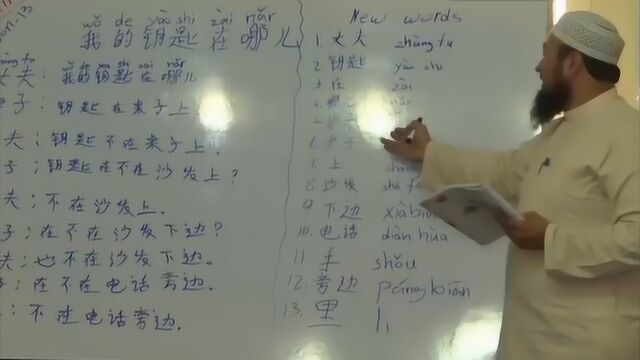 wǒ de yào shi zài nǎr
我的钥匙在哪儿
夫:我的钥匙在哪儿
子:钥匙在桌子上
夫:钥匙不在桌子上.
子:钥匙在不在沙发上?
夫:不在沙发上.
子:在不在沙发下边?
夫:也不在沙发下边.
:在不在电话旁边.
:不在电话旁边.
New words
1. 丈夫 zhàng fu
2. 钥匙 yào shi
3. 在 zài
nǎr
6. 桌子
7. 上
8. 沙发 shā fā
9. 下边 xiàbiān
10. 电话 diàn huà
11 手 shǒu
12. 旁边 pángbiān
13. 里 l